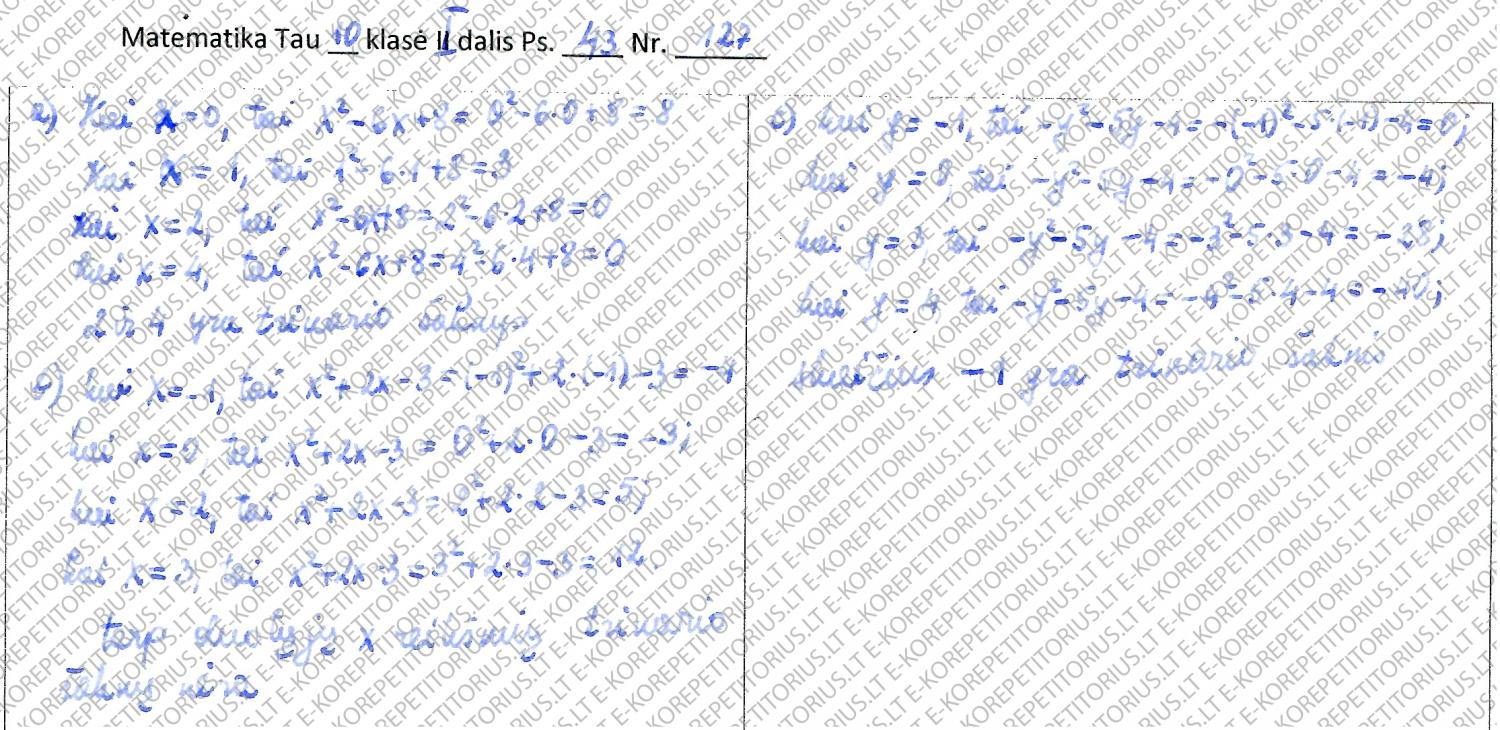 Matematika Tau 10 klasė I dalis Ps. 43 Nr. 127
a) Kai x=0, tai x²-6x+8=0²-6·0+8=8
Kai x=1, tai 1²-6·1+8=3
kai x=2, tai x²-6x+8=2²-6·2+8=0
kai x=4, tai x²-6x+8=4²-6·4+8=0
2 ir 4 yra trinario šaknys
b) kai x=-1, tai x²+2x-3=(-1)²+2·(-1)-3=-4
kai x=0, tai x²+2x-3=0²+2·0-3=-3;
kai x=2, tai x²+2x-3=2²+2·2-3=5;
kai x=3, tai x²+2x-3=3²+2·3-3=12.
tarp duotųjų x reikšmių trinario
šaknų nėra
c) kai y=-1, tai -y²-5y-4=-(-1)²-5·(-1)-4=0;
kai y=0, tai -y²-5y-4=-0²-5·0-4=-4;
kai y=3, tai -y²-5y-4=-3²-5·3-4=-28;
kai y=4, tai -y²-5y-4=-4²-5·4-4=-40;
skaičius -1 yra trinario šaknis
E-KOREPETITORIUS.LT